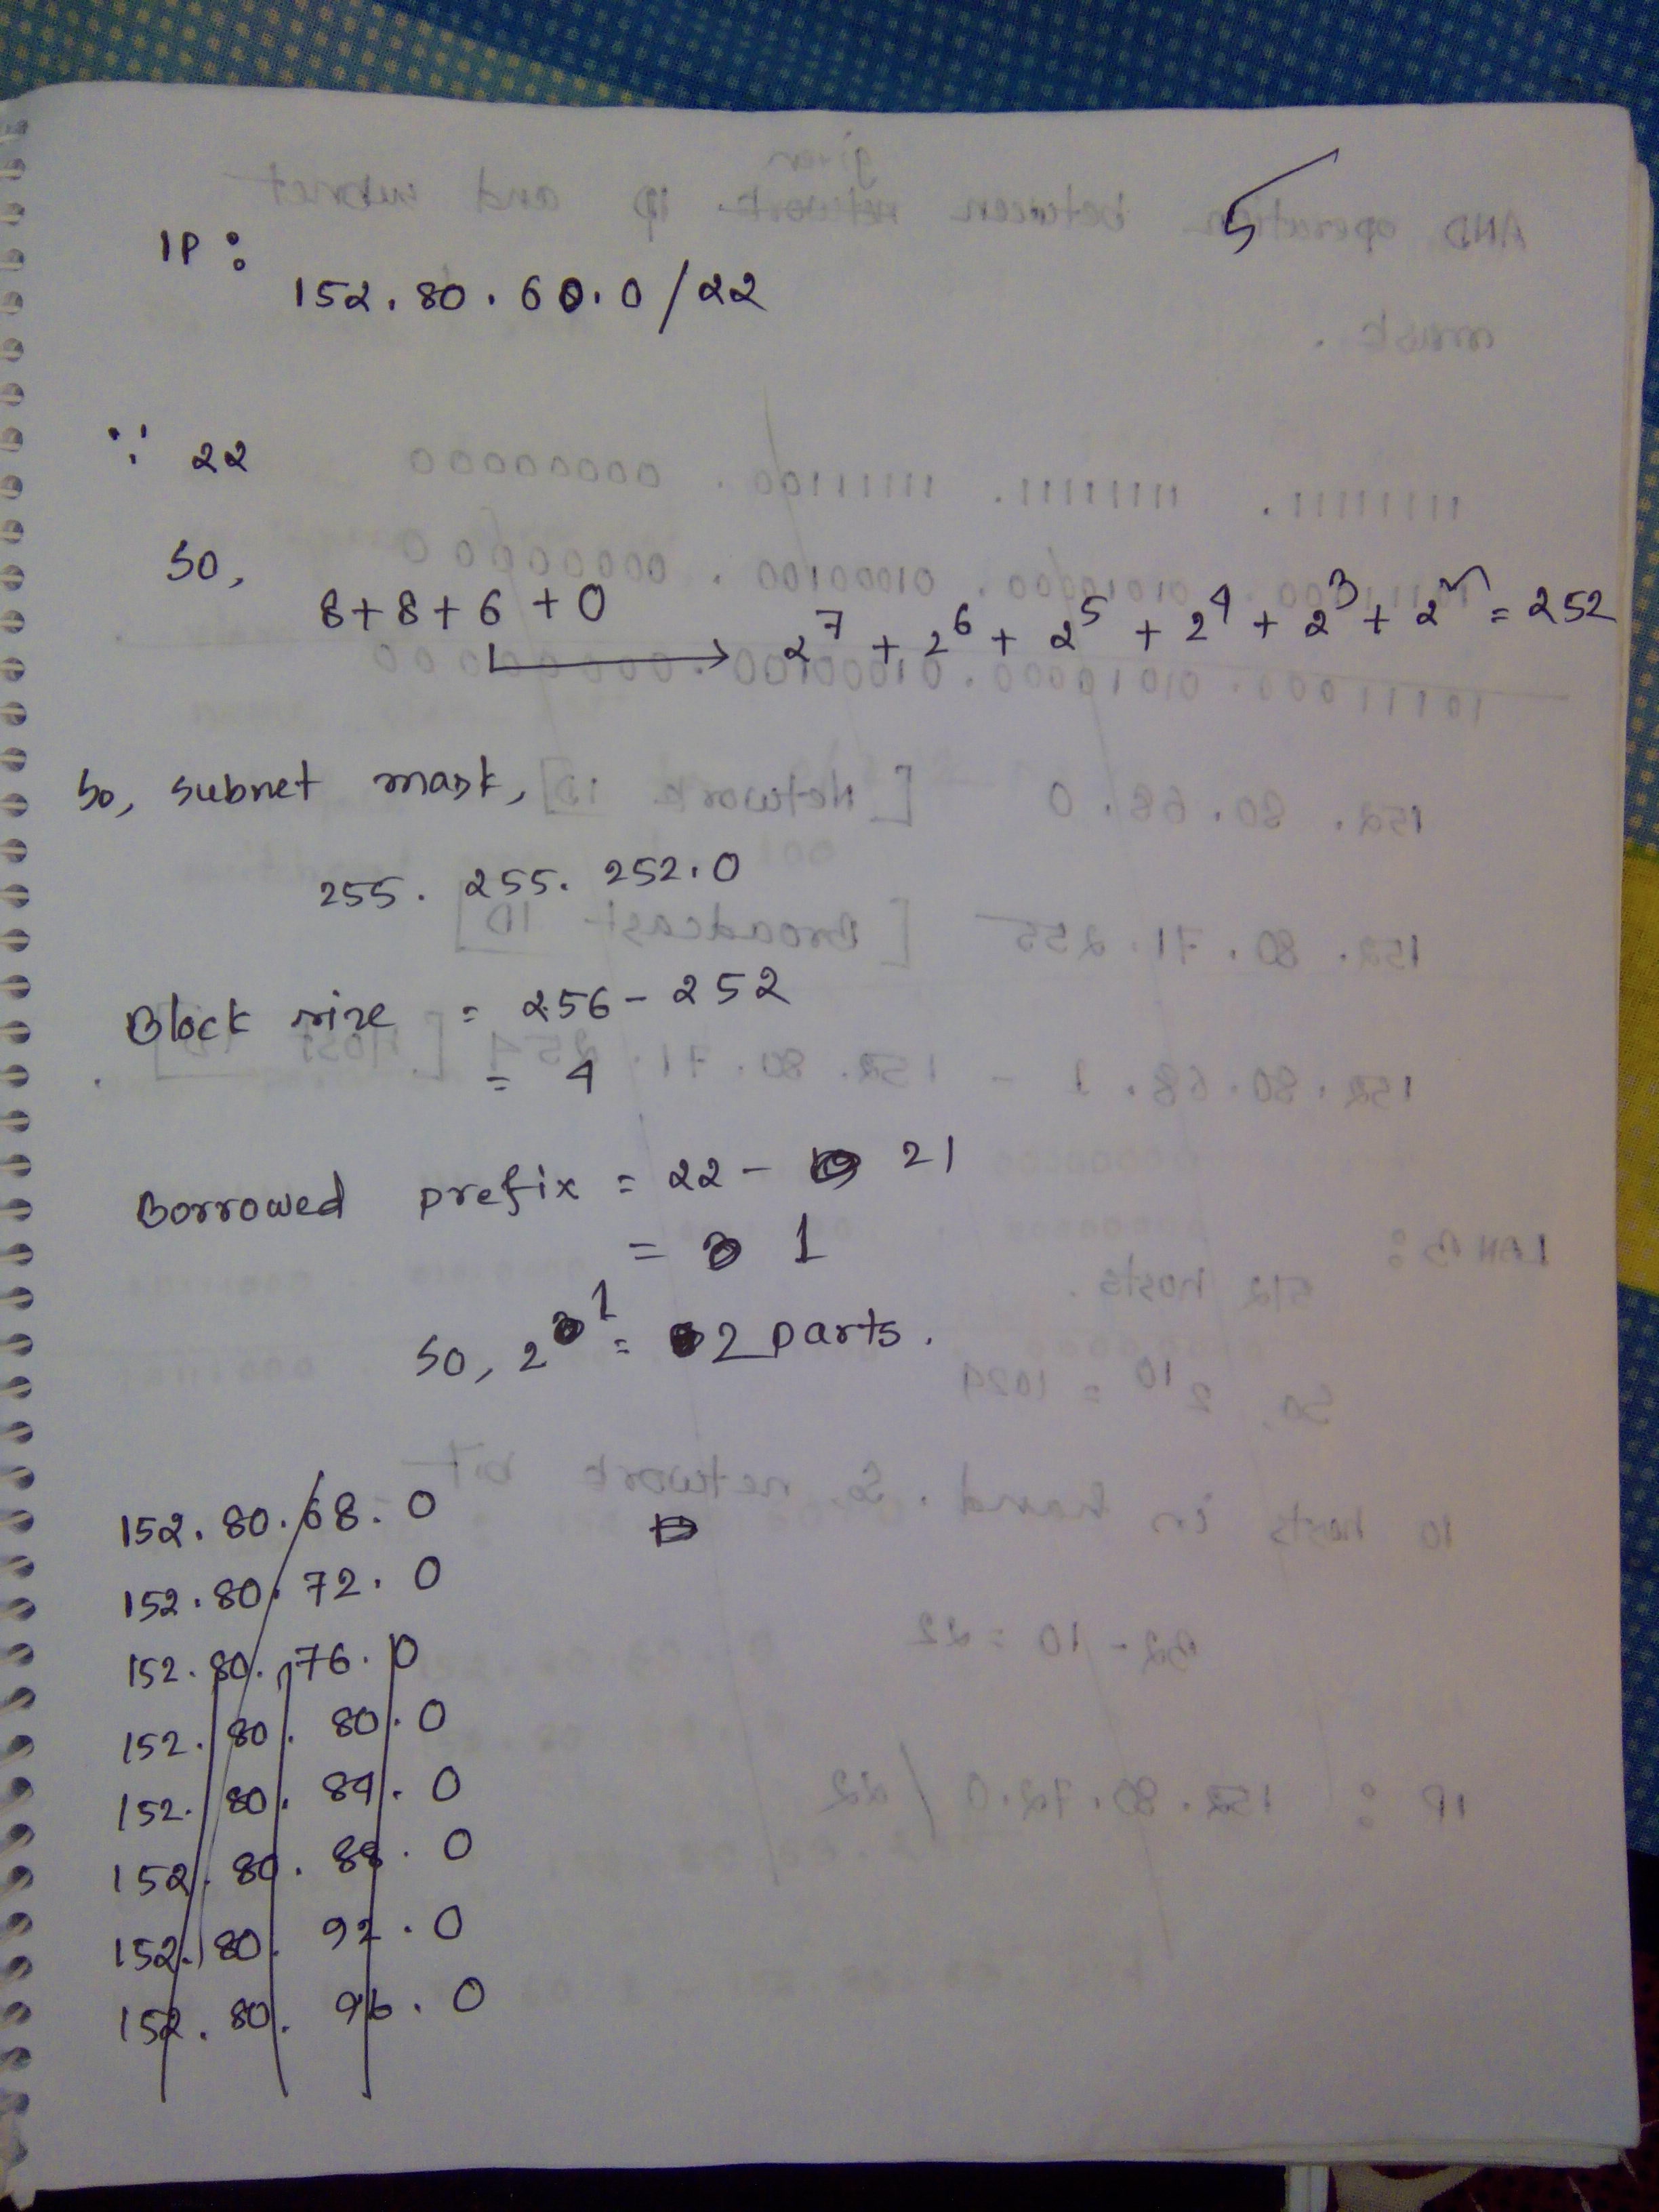 5
IP :
152.80.60.0/22
∵ 22
So,
8+8+6+0 → 2^7 + 2^6 + 2^5 + 2^4 + 2^3 + 2^2 = 252
So, subnet mask,
255. 255. 252.0
Block size = 256 - 252
= 4
Borrowed prefix = 22 - 21
= 1
So, 2^1 = 2 parts.
152.80.68.0
152.80.72.0
152.80.76.0
152.80.80.0
152.80.84.0
152.80.88.0
152.80.92.0
152.80.96.0